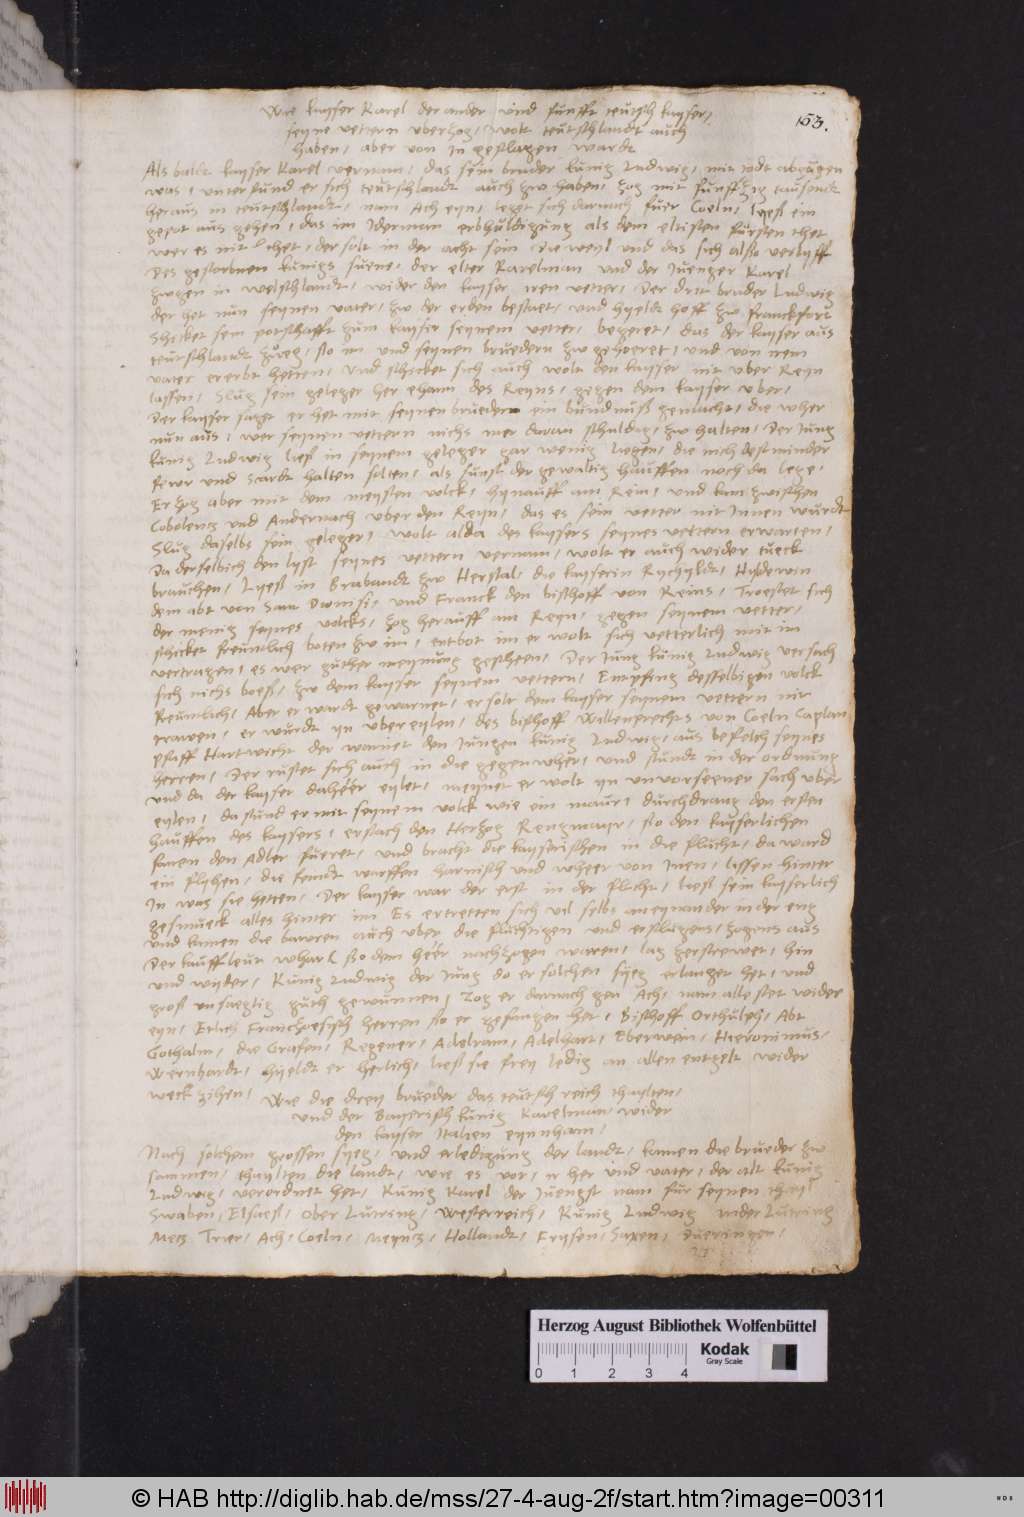 163.
Wie kayser Karel der ander und funfft teutsch kayser,
seyne vettern uberzog, wolt teutschlandt auch
haben, aber von in geslagen wardt
Als baldt kayser Karel vernam, das sein bruder kunig Ludwig, mit todt abgangen
was, unterstund er sich teutschlandt auch zw haben, zog mit funffzig tausendt
heraus in teutschlandt, nam Ach eyn, leget sich darnach fuer Coeln, liess ein
gepot aus gehen, das im Iderman erbhuldigung als dem eltisten fursten thet
wer es nit thet, der solt in der acht sein die weyl und das sich also verlyff
Des gestorbnen kunigs suene, der elter Karelman und der Juenger Karel
zwgen in welschlandt, wider den kayser iren vetter, Der drit bruder Ludwig
der het nun seynen vater, zw der erden bestaet, und hyeldt hoff zw franckfort
Schicket sein potschafft zum kayser seynem vetter, begeret, das der kayser aus
teutschlandt zueg, so im und seynen bruedern zw gehoeret, und von irem
vater ererbt hetten, Und schicket sich auch wolt den kayser nit uber Reyn
lassen, Slug sein geleger her ehann des Reyns, gegen dem kayser uber,
Der kayser saget er het mit seynen brueder ein bundnuss gemacht, die wher
nun aus, wer seynen vettern nichs mer daran schuldig, zw halten, Der Jung
kunig Ludwig liess in seynem geleger gar wenig liegen, die nich dest minder
fewr und Scardt halten solten, als sunst der gewaltig hauffen noch da lege,
Er zog aber mit dem meysten volck, hynauff am Rein, und kam zwischen
Cobolentz und Andernach uber den Reyn, das es sein vetter nit Innen wurdt
Slug daselbs sein geleger, wolt alda des kaysers seynes vettern erwarten,
Da derselbich den lyst seynes vettern vernam, wolt er auch wider tueck
brauchen, Lyess in Brabandt zw Herstal, die kayserin Rychyldt, Hyldewin
dem abt von Sant Dionisi, und Franck den bischoff von Reims, Troestet sich
der menig seynes volcks, zog herauff am Reyn, gegen seynem vetter,
schicket freuntlich boten zw im, entbot im er wolt sich vetterlich mit im
vertragen, es wer guther meynung geschen, Der Jung kunig Ludwig versach
sich nichs boess, zw dem kayser seynem vettern, Empfing desselbigen volck
Reumlich, Aber er wardt gewarnet, er solt dem kayser seynem vettern nit
trawen, er wurdt yn ubereylen, des bischoff Willenprechts von Coeln Caplan
pfaff Hartwicht der warnet den Jungen kunig Ludwig, aus befelch seynes
herren, Der rustet sich auch in die gegenwher, und stundt in der ordnung
und da der kayser daheer eylet, meynet er wolt yn unversehener sach uber
eylen, da stund er mit seynem volck wie ein maur, durchdrang den ersten
hauffen des kaysers, erstach den Herzog Rengmayr, so den kayserlichen
fanen den Adler fueret, und bracht die kayserischen in die flucht, da ward
ein flyhen, die feindt wurffen harnisch und wheer von Inen, lissen hinter
In was sie hetten, Der kayser war der erst in der flucht, liess sein kayserlich
gesmueck alles hinter im Es ertretten sich vil selbs aneynander in der eng
und kamen die bawren auch uber die fluchtigen und erslugens, zogens aus
Der kauffleut whar so dem heer nachzogen waren, lag zerstrewet, hin
und wyder, Kunig Ludwig der Jung do er solchen syeg erlanget het, und
gross unsaeglig guth gewunnen, Zog er darnach gen Ach, nam alle stet wider
eyn, Etlich Franzoesisch herren so er gefangen het, Bischoff Orthulph, Abt
Gothalm, die Grafen, Regener, Adelram, Adelhart, Eberwein, Hieronimus,
Wernhardt, hyeldt er herlich, liess sie frey ledig an allen entgelt wider
weck zihen,
Wie die drey brueder das teutsch reich thaylten,
und der Bayerisch kunig Karelman, wider
den kayser Italien eynnham,
Nach solchem grossen syeg, und erledigung der landt, kamen die brueder zw
samen, thaylten die landt, wie es vor, ir her und vater, der alt kunig
Ludwig, verordnet het, Kunig Karel der Juengst nam fur seynen thayl
Swaben, Elsaess, Ober Lutring, Westerreich, Kunig Ludwig nider Lutring
Metz Trier, Ach, Coeln, Meyntz, Hollandt, Frysen, Saxen, Dueringen,
Herzog August Bibliothek Wolfenbüttel
Kodak
Gray Scale
0 1 2 3 4
© HAB http://diglib.hab.de/mss/27-4-aug-2f/start.htm?image=00311